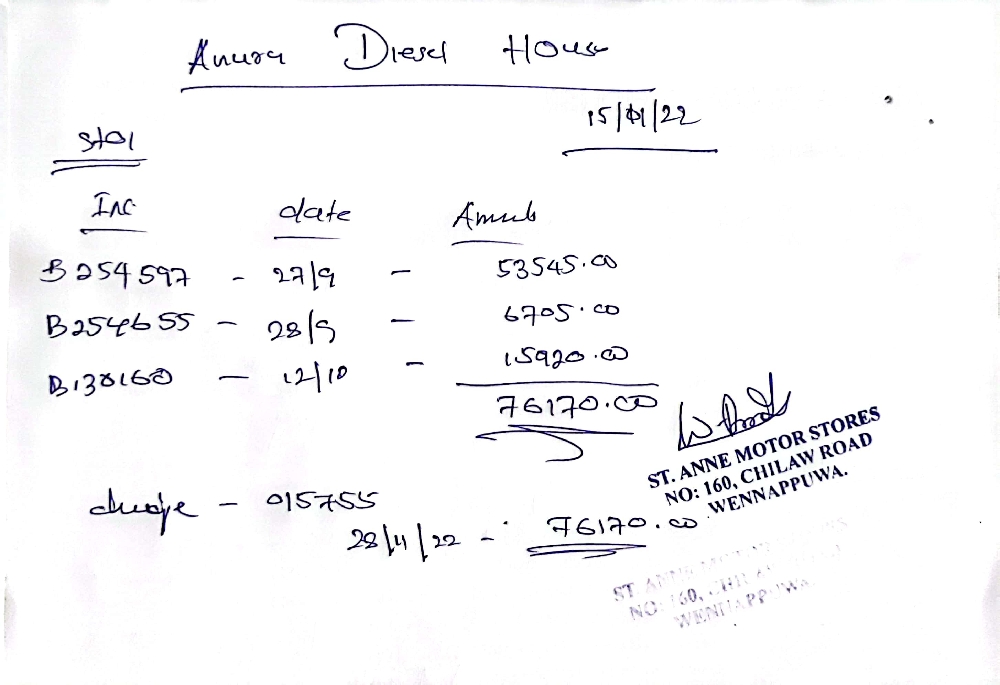 Anura Diesel House
15/11/22
Stol
Inc date
B254597 - 27/9 - 53545.00
B254655 - 28/9 - 6705.00
B130160 - 12/10 - 15920.00
76170.00
ST. ANNE MOTOR STORES
NO: 160, CHILAW ROAD
WENNAPPUWA.
- 015755
28/11/22 - 76170.00
ST ANNE MOTOR
NO: 160, CHILAW
WENNAPPUWA